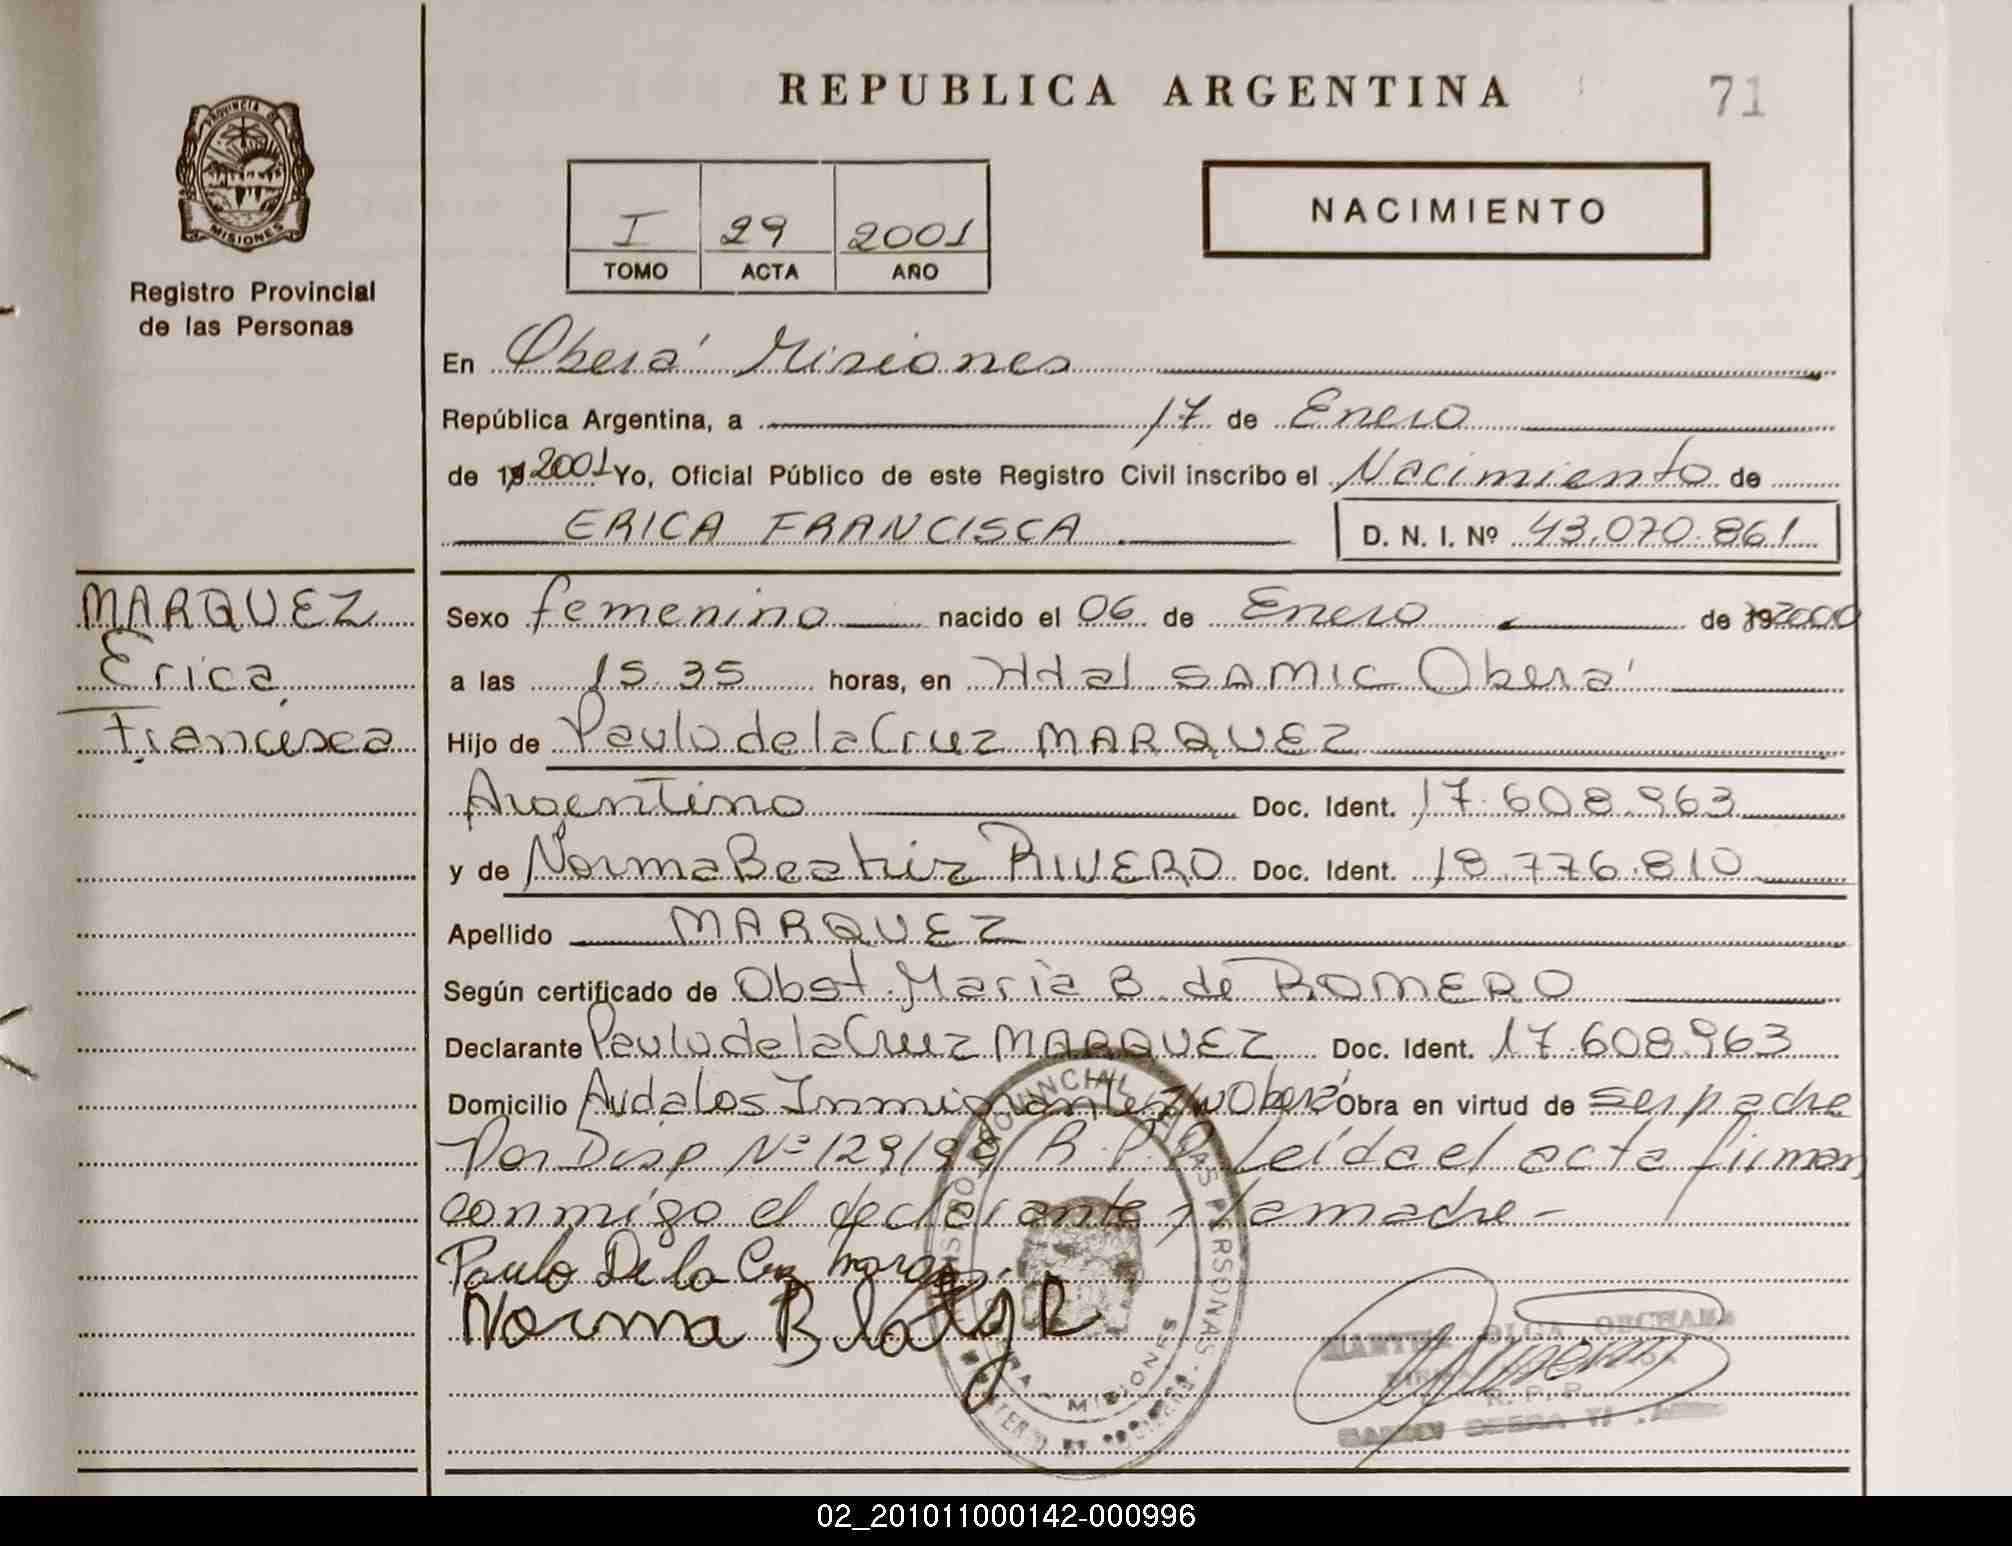 REPUBLICA ARGENTINA
71
PROVINCIA DE
MISIONES
Registro Provincial
de las Personas
I 29 2001
TOMO ACTA AÑO
NACIMIENTO
En Oberá Misiones
República Argentina, a 17 de Enero
de 19 2001 Yo, Oficial Público de este Registro Civil inscribo el Nacimiento de
ERICA FRANCISCA
D. N. I. Nº 43.070.861
MARQUEZ
Erica
Francisca
Sexo femenino nacido el 06 de Enero de 19 2000
a las 15.35 horas, en Hdal SAMIC Oberá
Hijo de Paulo de la Cruz MARQUEZ
Argentino Doc. Ident. 17.608.963
y de Norma Beatriz RIVERO Doc. Ident. 18.776.810
Apellido MARQUEZ
Según certificado de Obst. María B. de ROMERO
Declarante Paulo de la Cruz MARQUEZ Doc. Ident. 17.608.963
Domicilio Avdalos Inmigrantes Oberá Obra en virtud de ser padre
Por Disp Nº 129/98 R.P.P. leída el acta firman
conmigo el declarante y la madre -
Paulo De la Cruz
Norma B
PROVINCIAL DE LAS PERSONAS
MISIONES
OLGA ORCHANA
R. P. P.
02_201011000142-000996